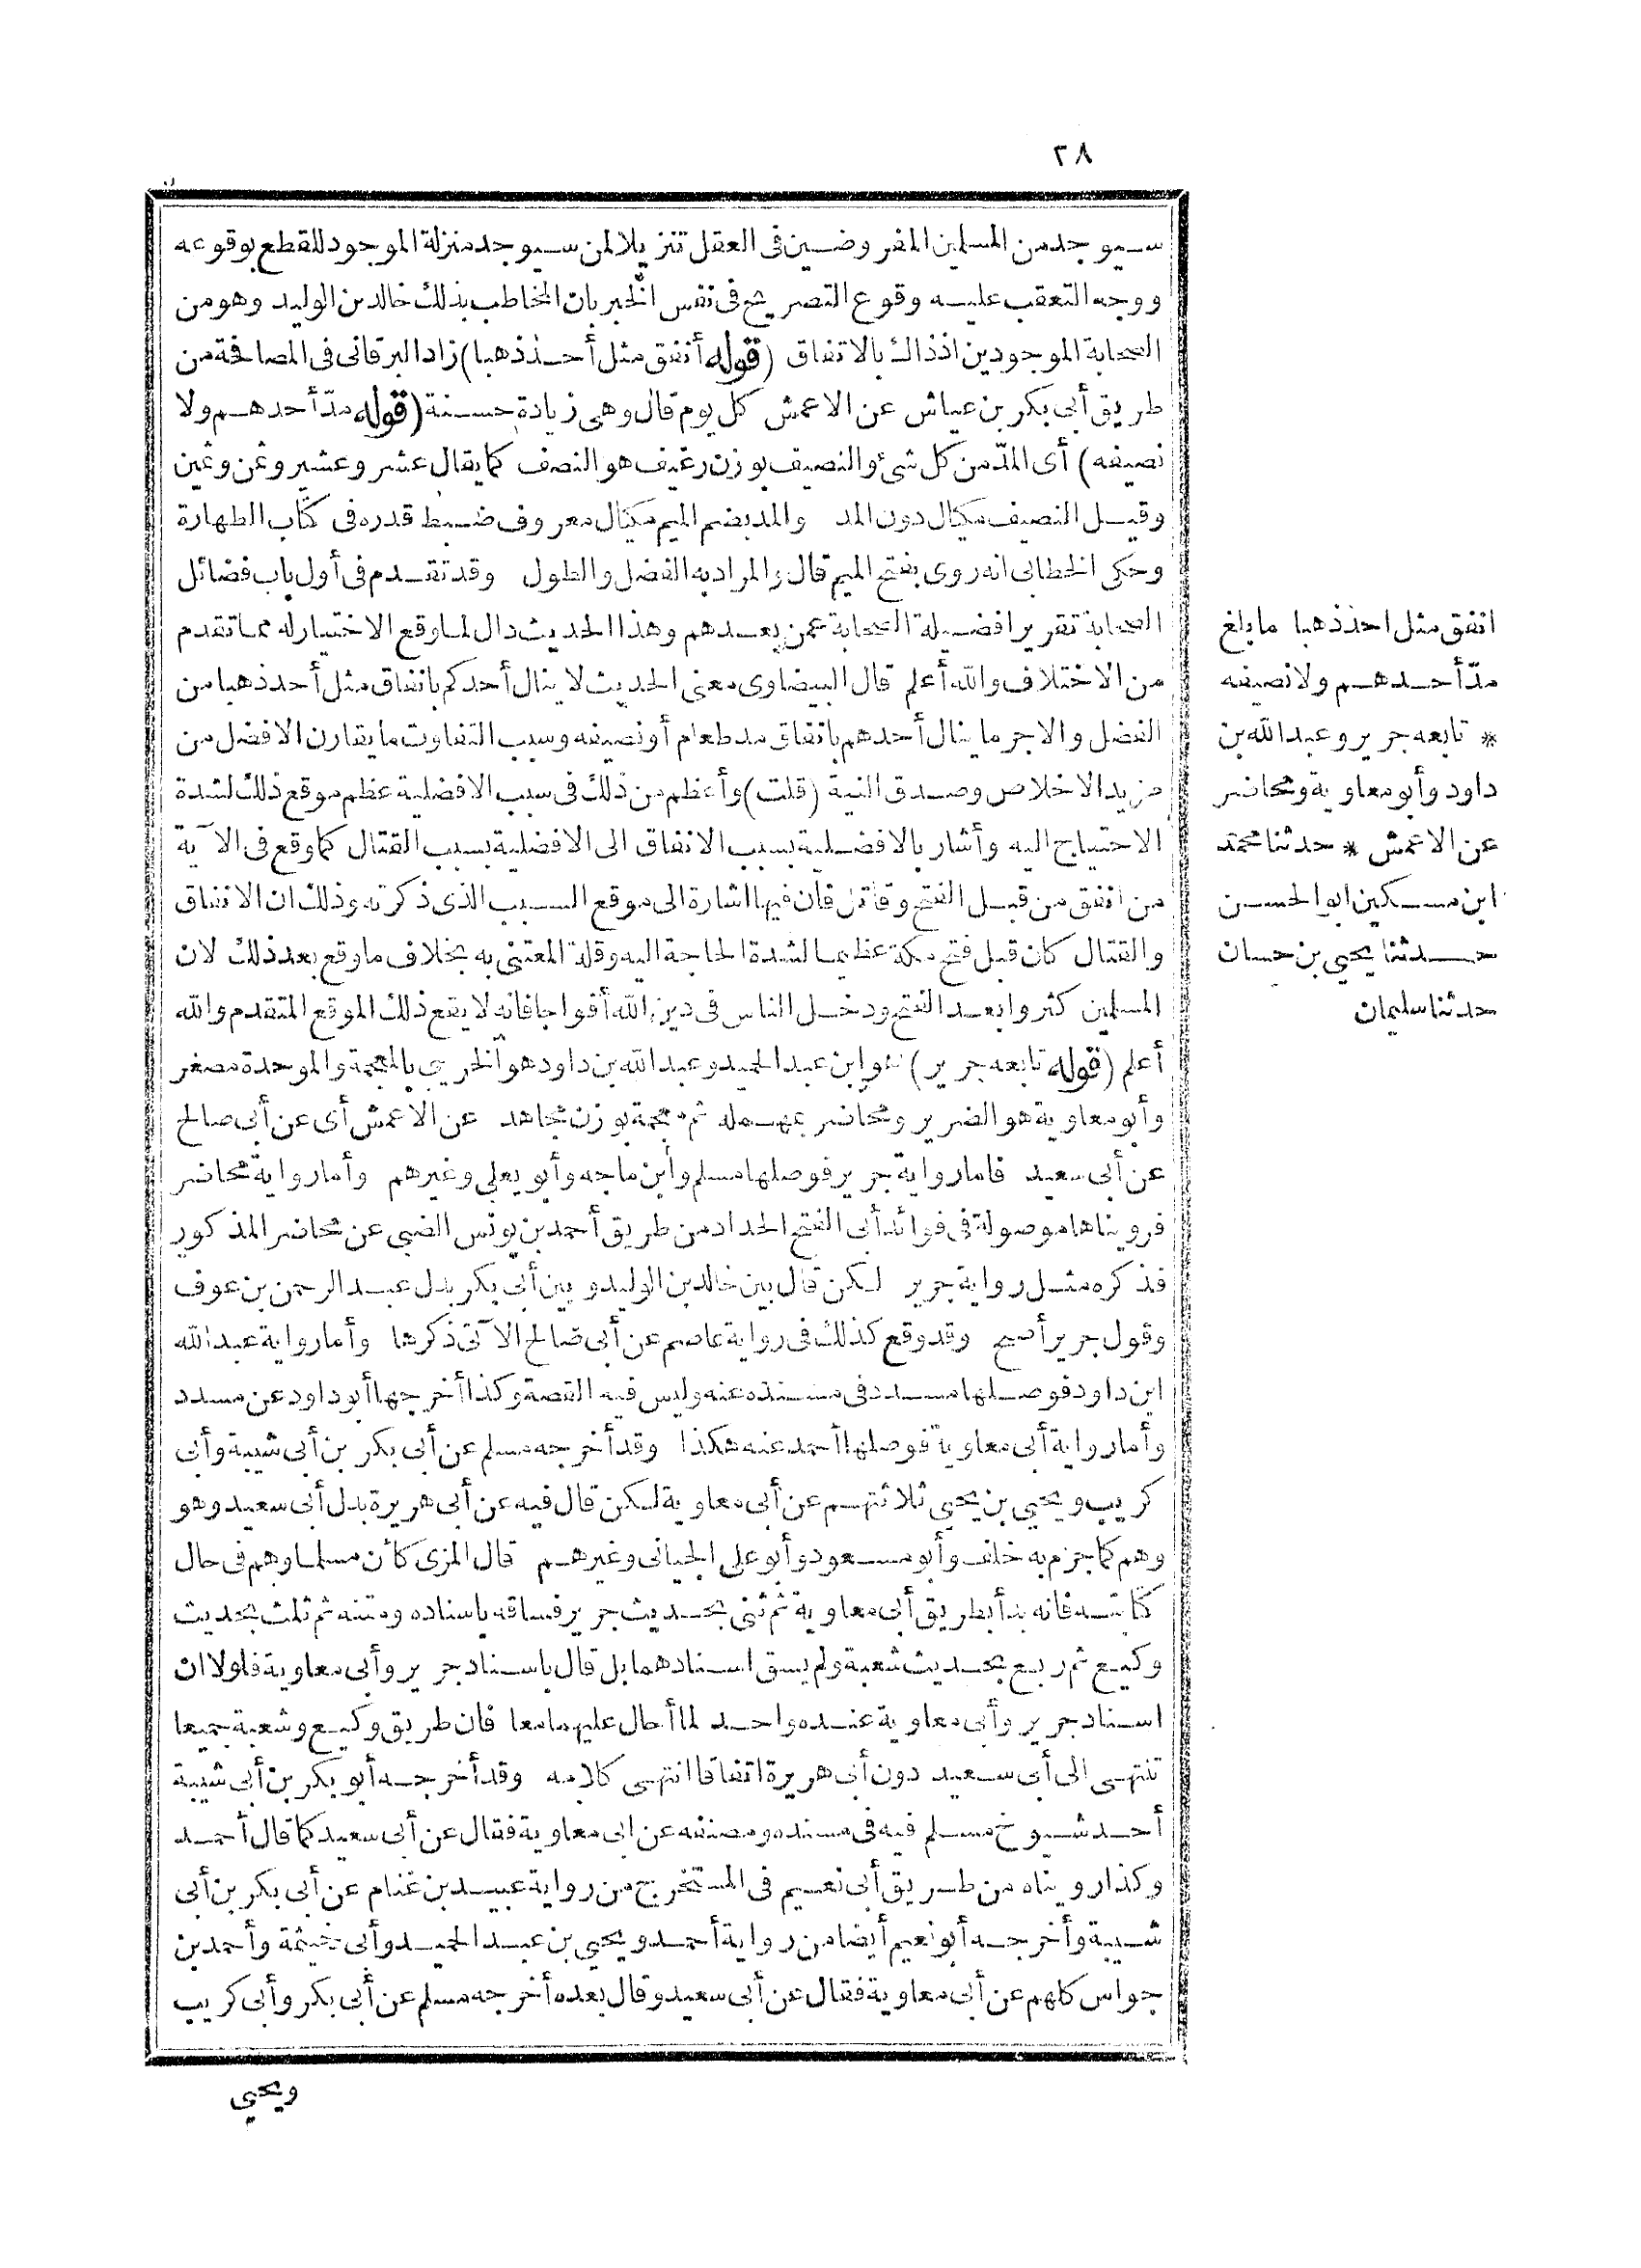 ٢٨
سيوجد من المسلين المفروضين فى العقل تنزيلا لمن سيوجد منزلة الموجود للقطع بوقوعه
ووجه التعقب عليه وقوع التصريح فى نفس الخبر بان المخاطب بذلك خالد بن الوليد وهو من
الصحابة الموجودين اذذاك بالاتفاق (قوله أنفق مثل أحد ذهبا) زاد البرقانى فى المصافحة من
طريق أبى بكر بن عياش عن الاعمش كل يوم قال وهى زيادة حسنة (قوله مدّ أحدهم ولا
نصيفه) أى المدّ من كل شئ والنصيف بوزن رغيف هو النصف كما يقال عشر وعشير وثمن وثمين
وقيل النصيف مكال دون المد والمد بضم الميم مكيال معروف ضبط قدره فى كتاب الطهارة
وحكى الخطابى انه روى بفتح الميم قال والمراد به الفضل والطول وقد تقدم فى أول باب فضائل
الصحابة تقرير افضيلة الصحابة عمن بعدهم وهذا الحديث دال لما وقع الاختيار له مما تقدم
من الاختلاف والله أعلم قال البيضاوى معنى الحديث لا ينال أحدكم بانفاق مثل أحد ذهبا من
الفضل والاجر ما ينال أحدهم بانفاق مد طعام أو نصيفه وسبب التفاوت ما يقارن الافضل من
مزيد الاخلاص وصدق النية (قلت) وأعظم من ذلك فى سبب الافضلية عظم موقع ذلك لشدة
الاحتياج اليه وأشار بالافضلية بسبب الانفاق الى الافضلية بسبب القتال كما وقع فى الآية
من انفق من قبل الفتح وقاتل فان فيها اشارة الى موقع السبب الذى ذكرته وذلك ان الانفاق
والقتال كان قبل فتح مكة عظيما لشدة الحاجة اليه وقلة المعتنى به بخلاف ما وقع بعد ذلك لان
المسلمين كثروا بعد الفتح ودخل الناس فى دين الله أفواجا فانه لا يقع ذلك الموقع المتقدم والله
أعلم (قوله تابعه جرير) هو ابن عبد الحميد وعبد الله بن داود هو الخريبى بالمعجمة والموحدة مصغر
وأبو معاوية هو الضرير ومحاضر بمهملة ثم معجمة بوزن مجاهد عن الاعمش أى عن أبى صالح
عن أبى سعيد فاما رواية جرير فوصلها مسلم وابن ماجه وأبو يعلى وغيرهم وأما رواية محاضر
فرويناها موصولة فى فوائد أبى الفتح الحداد من طريق أحمد بن يونس الضبى عن محاضر المذكور
فذكره مثل رواية جرير لكن قال بين خالد بن الوليد وبين أبى بكر بدل عبد الرحمن بن عوف
وقول جرير أصح وقد وقع كذلك فى رواية عاصم عن أبى صالح الآتى ذكرها وأما رواية عبد الله
ابن داود فوصلها مسدد فى مسنده عنه وليس فيه القصة وكذا أخرجها أبو داود عن مسدد
وأما رواية أبى معاوية فوصلها أحمد عنه هكذا وقد أخرجه مسلم عن أبى بكر بن أبى شيبة وأبى
كريب ويحيى بن يحيى ثلاثتهم عن أبى معاوية لكن قال فيه عن أبى هريرة بدل أبى سعيد وهو
وهم كما جزم به خلف وأبو مسعود وأبو على الجيانى وغيرهم قال المزى كأن مسلما وهم فى حال
كتابته فانه بدأ بطريق أبى معاوية ثم ثنى بحديث جرير فساقه باسناده ومتنه ثم ثلث بحديث
وكيع ثم ربع بحديث شعبة ولم يسق اسنادهما بل قال باسناد جرير وأبى معاوية فلولا ان
اسناد جرير وأبى معاوية عنده واحد لما أحال عليهما معا فان طريق وكيع وشعبة جميعا
تنتهى الى أبى سعيد دون أبى هريرة اتفاقا انتهى كلامه وقد أخرجه أبو بكر بن أبى شيبة
أحد شيوخ مسلم فيه فى مسنده ومصنفه عن ابى معاوية فقال عن أبى سعيد كما قال أحمد
وكذا رويناه من طريق أبى نعيم فى المستخرج من رواية عبيد بن غنام عن أبى بكر بن أبى
شيبة وأخرجه أبو نعيم أيضا من رواية أحمد ويحيى بن عبد الحميد وأبى خيثمة وأحمد بن
جواس كلهم عن أبى معاوية فقال عن أبى سعيد وقال بعده أخرجه مسلم عن أبى بكر وأبى كريب
ويحيى
انفق مثل احد ذهبا ما بلغ
مدّ أحدهم ولا نصيفه
* تابعه جرير وعبد الله بن
داود وأبو معاوية ومحاضر
عن الاعمش * حدثنا محمد
ابن مسكين ابو الحسن
حدثنا يحيى بن حسان
حدثنا سليمان